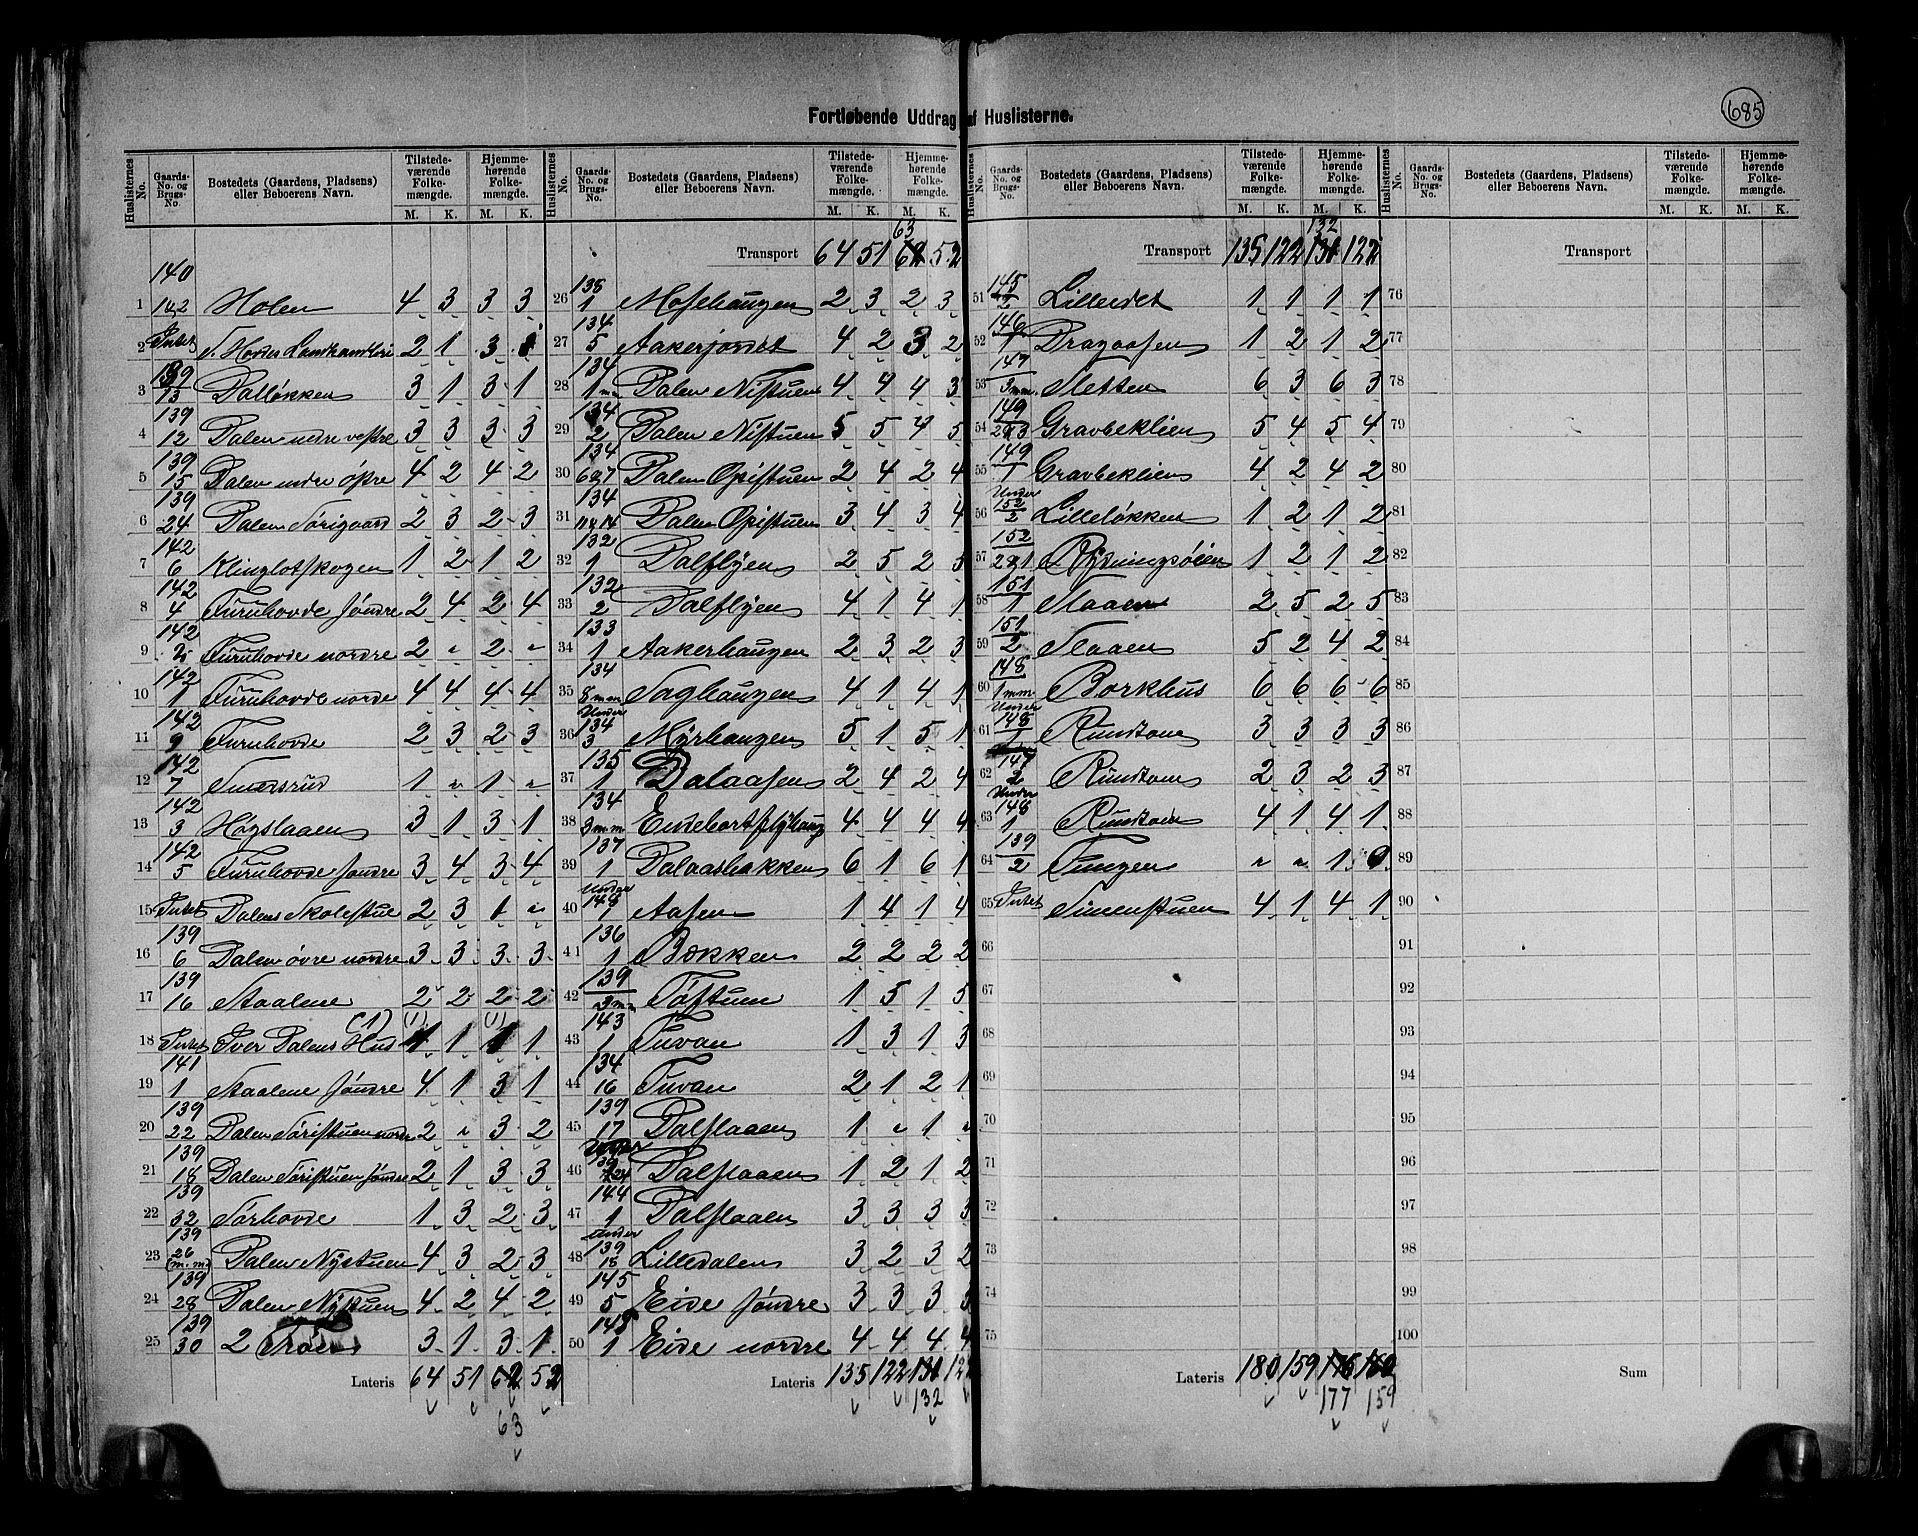 Fortløbende Uddrag af Huslisterne.
685
Huslisternes No.
Gaards-No. og Brugs-No.
Bostedets (Gaardens, Pladsens) eller Beboerens Navn.
Tilstedeværende Folkemængde. M. K.
Hjemmehørende Folkemængde. M. K.
1 140 1 o. 2 Holen 4 3 3 3
2 Intet N. Hovdes Landhandleri 2 1 3
3 139 13 Dalløkken 3 1 3 1
4 139 12 Dalen nedre vestre 3 3 3 3
5 139 15 Dalen nedre østre 4 2 4 2
6 139 24 Dalen Sørigaard 2 3 2 3
7 142 6 Klinglotskogen 1 2 1 2
8 142 4 Furuhovde søndre 2 4 2 4
9 142 2 Furuhovde nordre 2 " 2 "
10 142 1 Furuhovde nordre 4 4 4 4
11 142 9 Furuhovde 2 3 2 3
12 142 7 1 " 1 "
13 142 3 Høgslaaen 3 1 3 1
14 142 5 Furuhovde søndre 3 4 3 4
15 Intet Dalens Skolestue 2 3 1 "
16 139 6 Dalen øvre nordre 3 3 3 3
17 139 16 Staalene 2 2 2 2
18 Intet Iver Dalens Hus (1) (1) (1) 1 1 1 1
19 141 1 Staalene søndre 4 1 3 1
20 139 22 Dalen Søristuen nordre 2 " 3 2
21 139 18 Dalen Søristuen søndre 2 1 3 3
22 139 32 Sørhovde 1 3 2 3
23 139 26 (m.m.) Dalen Nystuen 4 3 2 3
24 139 28 Dalen Nystuen 4 2 4 2
25 139 30 2 Trøen 3 1 3 1
Lateris 64 51 62 52
63
Huslisternes No.
Gaards-No. og Brugs-No.
Bostedets (Gaardens, Pladsens) eller Beboerens Navn.
Tilstedeværende Folkemængde. M. K.
Hjemmehørende Folkemængde. M. K.
63
Transport 64 51 62 52
26 138 1 Mosehaugen 2 3 2 3
27 134 5 Aakerjordet 4 2 3 2
28 134 1 m Dalen Nistuen 4 4 4 3
29 134 2 Dalen Nistuen 5 5 4 5
30 134 6 o 7 Dalen Opistuen 2 4 2 4
31 134 Dalen Opistuen 3 4 3 4
32 132 1 Dalflyen 2 5 2 5
33 132 2 Dalflyen 4 1 4 1
34 133 1 Aakerhaugen 2 3 2 3
35 134 8 m m Saghaugen 4 1 4 1
36 Under 134 3 Myrhaugen 5 1 5 1
37 135 1 Dalaasen 2 4 2 4
38 134 3 m m 4 4 4 4
39 137 1 Dalaasbakken 6 1 6 1
40 under 148 1 Aasen 1 4 1 4
41 136 1 Bokken 2 2 2 2
42 139 3 m Tøftum 1 5 1 5
43 143 1 Tuvan 1 3 1 3
44 134 16 Tuvan 2 1 2 1
45 139 17 Dalslaaen 1 " 1 "
46 Under 139 Dalslaaen 1 2 1 2
47 144 1 Dalslaaen 3 3 3 3
48 under 139 18 Lilledalen 3 2 3 2
49 145 5 Eide søndre 3 3 3 3
50 145 1 Eide nordre 4 4 4 4
Lateris 135 122 131 12
132
Huslisternes No.
Gaards-No. og Brugs-No.
Bostedets (Gaardens, Pladsens) eller Beboerens Navn.
Tilstedeværende Folkemængde. M. K.
Hjemmehørende Folkemængde. M. K.
132
Transport 135 122 131 122
51 145 2 Lilleeidet 1 1 1 1
52 146 1 Dragaasen 1 2 1 2
53 147 3 mm Sletten 6 3 6 3
54 149 2 o 3 Gravbeklien 5 4 5 4
55 149 1 Gravbeklien 4 2 4 2
56 Under 152 2 Lilleløkken 1 2 1 2
57 152 2 o 1 1 2 1 2
58 151 1 Slaaen 2 5 2 5
59 151 2 Slaaen 5 2 4 2
60 148 1 mm Borkhus 6 6 6 6
61 Under 148 1 Rundtom 3 3 3 3
62 147 2 Rundtom 2 3 2 3
63 Under 148 1 Rundtom 4 1 4 1
64 139 2 Tungen " " 1
65 Intet Simenstuen 4 1 4 1
66
67
68
69
70
71
72
73
74
75
Lateris 180 159 176 160
177 159
Huslisternes No.
Gaards-No. og Brugs-No.
Bostedets (Gaardens, Pladsens) eller Beboerens Navn.
Tilstedeværende Folkemængde. M. K.
Hjemmehørende Folkemængde. M. K.
Transport
76
77
78
79
80
81
82
83
84
85
86
87
88
89
90
91
92
93
94
95
96
97
98
99
100
Sum